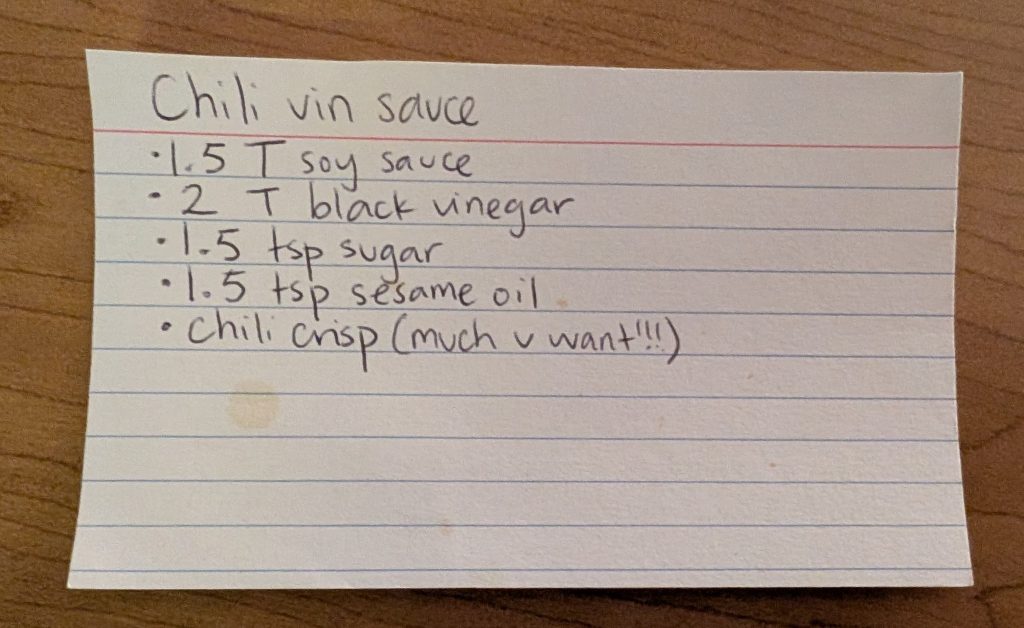 Chili vin sauce
• 1.5 T soy sauce
• 2 T black vinegar
• 1.5 tsp sugar
• 1.5 tsp sesame oil
• Chili crisp (much u want!!!)